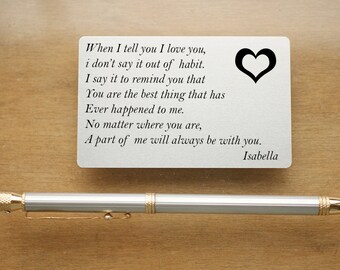 When I tell you I love you,
i don't say it out of habit.
I say it to remind you that
You are the best thing that has
Ever happened to me.
No matter where you are,
A part of me will always be with you.
Isabella